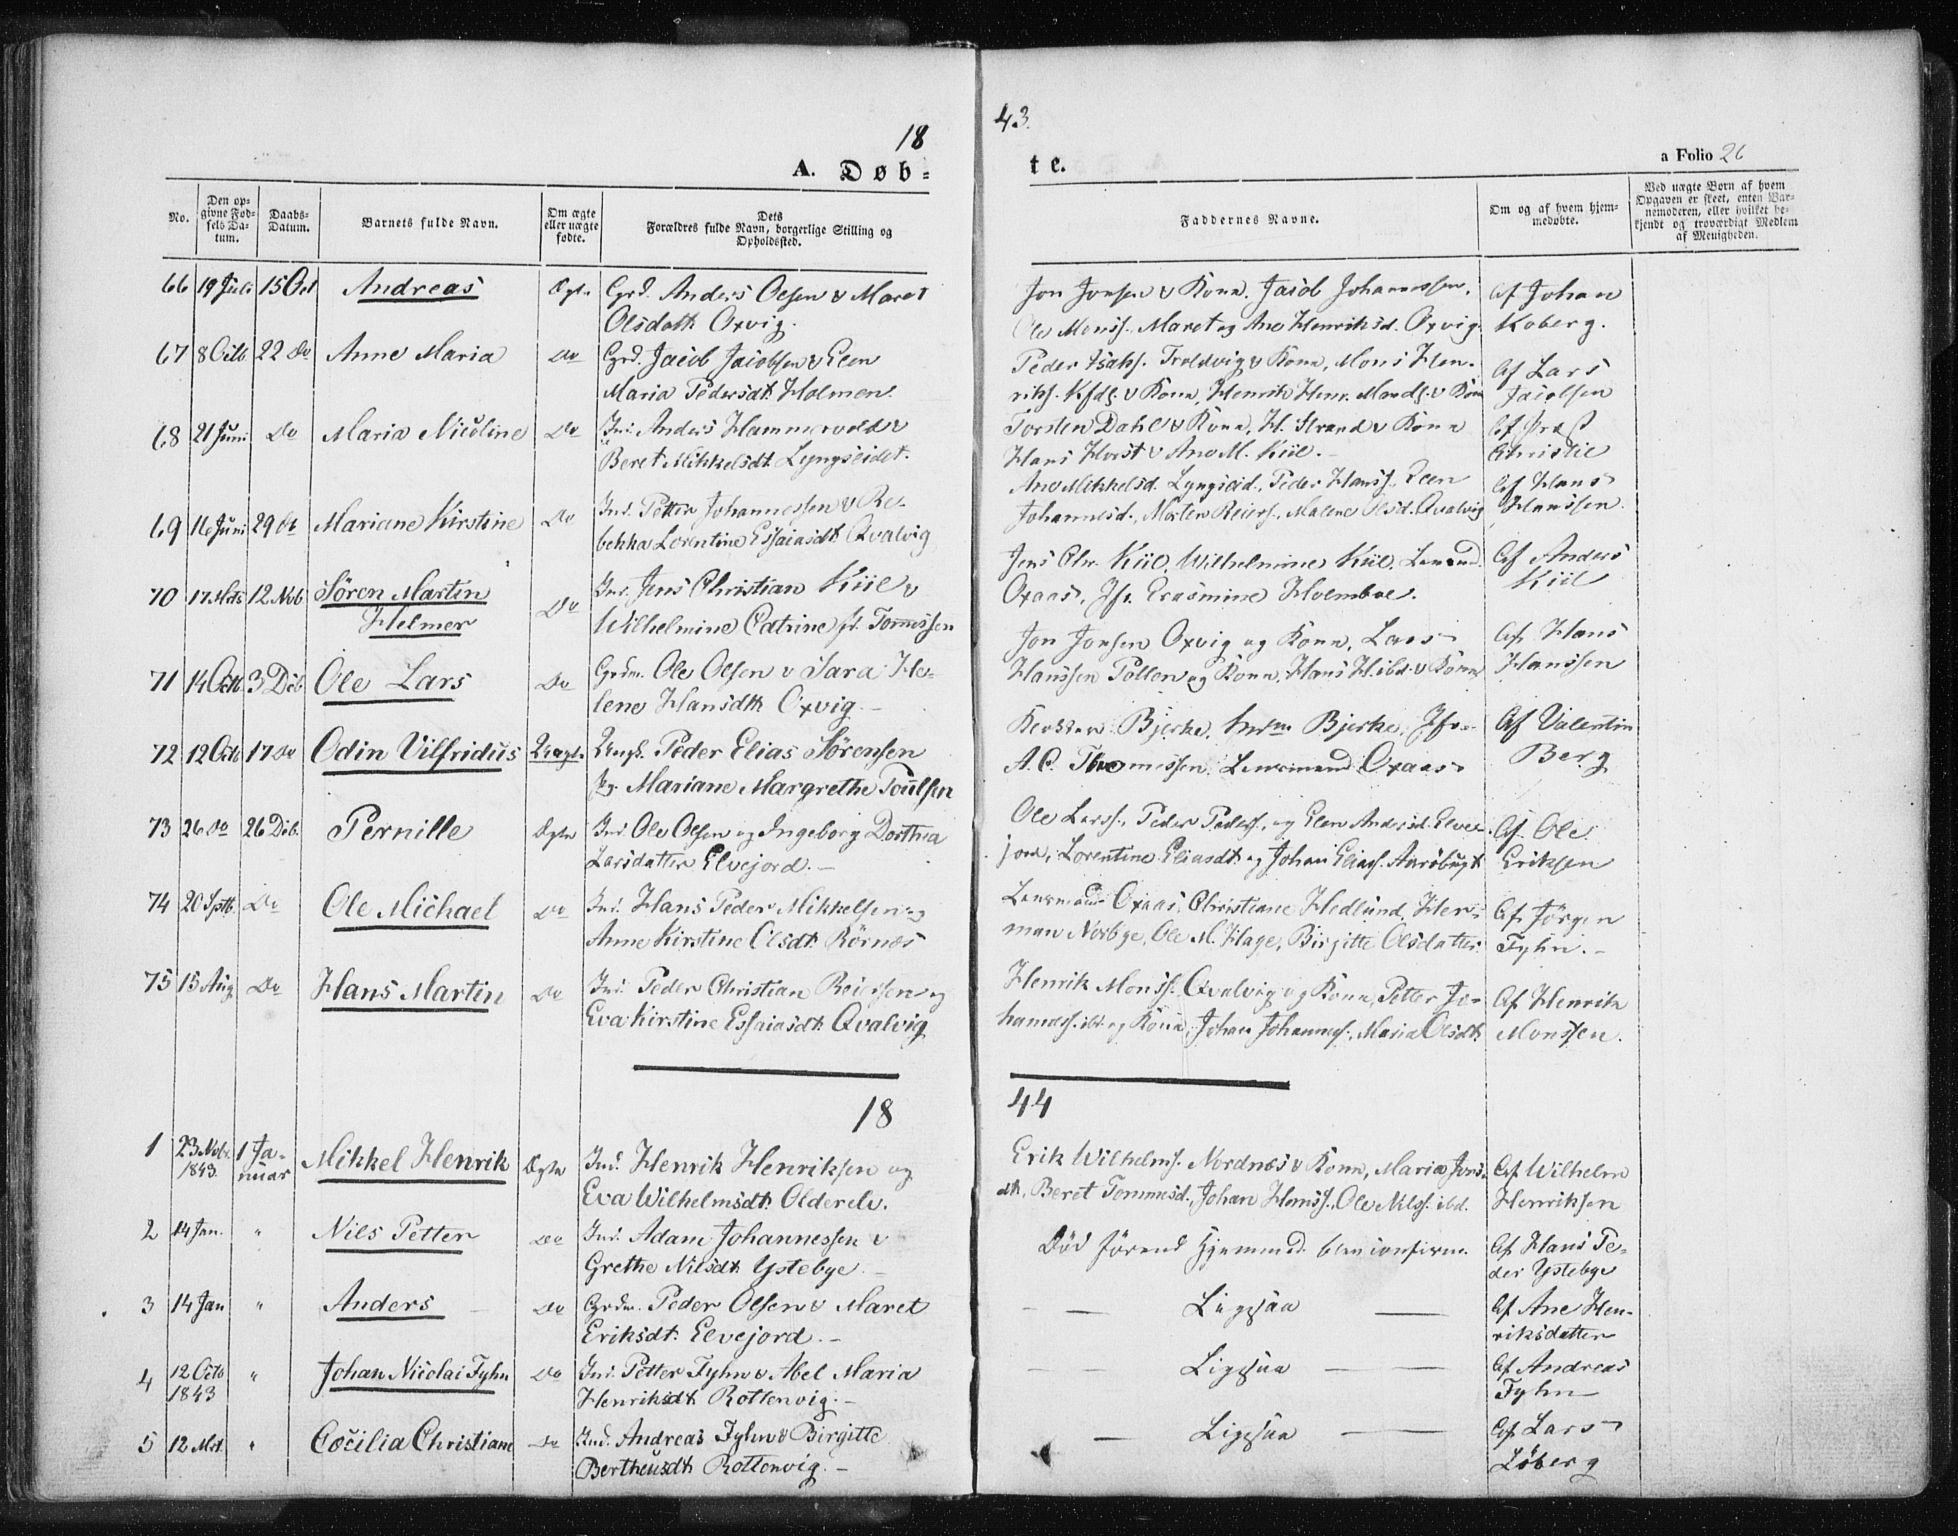 18
43.
A. Døb-
te.
a Folio 26
No.
Den opgivne Fødsels Datum.
Daabs-Datum.
Barnets fulde Navn.
Om ægte eller uægte fødte.
Dets Forældres fulde Navn, borgerlige Stilling og Opholdssted.
Faddernes Navne.
Om og af hvem hjemmedøbte.
Ved uægte Børn af hvem Opgaven er skeet, enten Barnemoderen, eller hvilket bekjendt og troværdigt Medlem af Menigheden.
66 19 Juli 15 Oct Andreas Ægte Grd. Anders Olsen & Maret
Olsdatt. Oxvig.
Jon Jonsen & Kone, Jacob Johannessen,
Ole Monss. Maret og Ane Henriksd. Oxvig.
Af Johan
Koberg.
67 8 Octb 22 Do Anne Maria Do Grd. Jacob Jacobsen & Elen
Maria Pedersdt. Holmen.
Peder Isaks. Troldvig & Kone, Mons Hen-
riks. Kfdg. & Kone, Henrik Henr. Mandg. & Kone
Af Lars
Jacobsen
68 21 Juni Do Maria Nicoline Do Ind. Anders Hammervold &
Beret Mikkelsdt. Lyngseidet.
Torsten Dahl & Kone, H. Strand & Kone
Hans Horst & Ane M. Kiil.
Af Præst
Christie
69 16 Juni 29 Do Mariane Kirstine Do Ind. Petter Johannessen & Re-
bekka Lorentine Essaiasdt. Qvalvig
Ane Mikkelsd. Lyngseid., Peder Hanss. Elen
Johannesd., Morten Reiers., Malene Olsd. Qvalvig
Af Hans
Hanssen.
70 17 Mts 12 Nob Sören Martin
Helmer
Do Ind. Jens Christian Kiil &
Wilhelmine Catrine f. Tomessen
Jens Chr. Kiil, Wilhelmine Kiil, Lensmd.
Oxaas, Jfr. Erasmine Holmboe.
Af Anders
Kiil
71 14 Octb. 3 Dcb Ole Lars Do Grdm. Ole Olsen & Sara He-
lene Hansdtt. Oxvig.
Jon Jonsen Oxvig og Kone, Lars
Hanssen Pollen og Kone, Hans H. ibd. & Kone
Af Hans
Hanssen
72 12 Octb 17 Do Odin Vilfridus Uægte Ungk. Peder Elias Sörensen
Pg. Mariane Margrethe Poulsen
Bjerke, Bjerke, Jfr.
A. C. Thomessen, Lensmand Oxaas
Af Valentin
Berg
73 26 Do 26 Dcb. Pernille Ægte Ind. Ole Olsen og Ingeborg Dorthea
Larsdatter Elvejord.
Ole Larss., Peder Peders., og Elen Andersd. Elve-
jord, Lorentine Eliasdt. og Johan Elias. Aaröbugt
Af Ole
Eriksen
74 20 Sptb. Do Ole Michael Do Ind. Hans Peder Mikkelsen og
Anne Kirstine Olsdt. Rörnæs
Lensmand Oxaas, Christiane Hedlund, Her-
man Norbye, Ole M. Hage, Birgitte Olsdatter
Af Jörgen
Fyhn.
75 15 Aug. Do Hans Martin Do Ind. Peder Christian Reiersen og
Eva Kirstine Essaiasdt. Qvalvig
Henrik Monss. Qvalvig og Kone, Petter Jo-
hannes. ibd. og Kone, Johan Johannes., Maria Olsdt.
Af Henrik
Monssen.
18
44
1 23 Nobr. 1843 1 Ja-
nuar Mikkel Henrik Ægte Ind. Henrik Henriksen og
Eva Wilhelmsdt. Olderelv.
Erik Wilhelms. Nordnæs & Kone, Maria Jons-
dt., Beret Tommesd., Johan Hanss., Ole Nilss. ibd.
Af Wilhelm
Henriksen
2 14 Jan. " Nils Petter Do Ind. Adam Johannessen &
Grethe Nilsdt. Ystebye
Död förend Hjemmed. blev confirm.
Af Hans Pe-
der Ystebye
3 14 Jan " Anders Do Grdm. Peder Olsen & Maret
Eriksdt. Elvejord.
Ligesaa
Af Ane Hen-
riksdatter
4 12 Octb 1843 " Johan Nicolai Fyhn Do Ind. Petter Fyhn & Abel Maria
Henriksdt. Rottenvig.
Ligesaa
Af Andreas
Fyhn
5 12 Mrt. " Cæcilia Christiane Do Ind. Andreas Fyhn & Birgitte
Bertheusdt. Rottenvig.
Ligesaa
Af Lars
Löberg